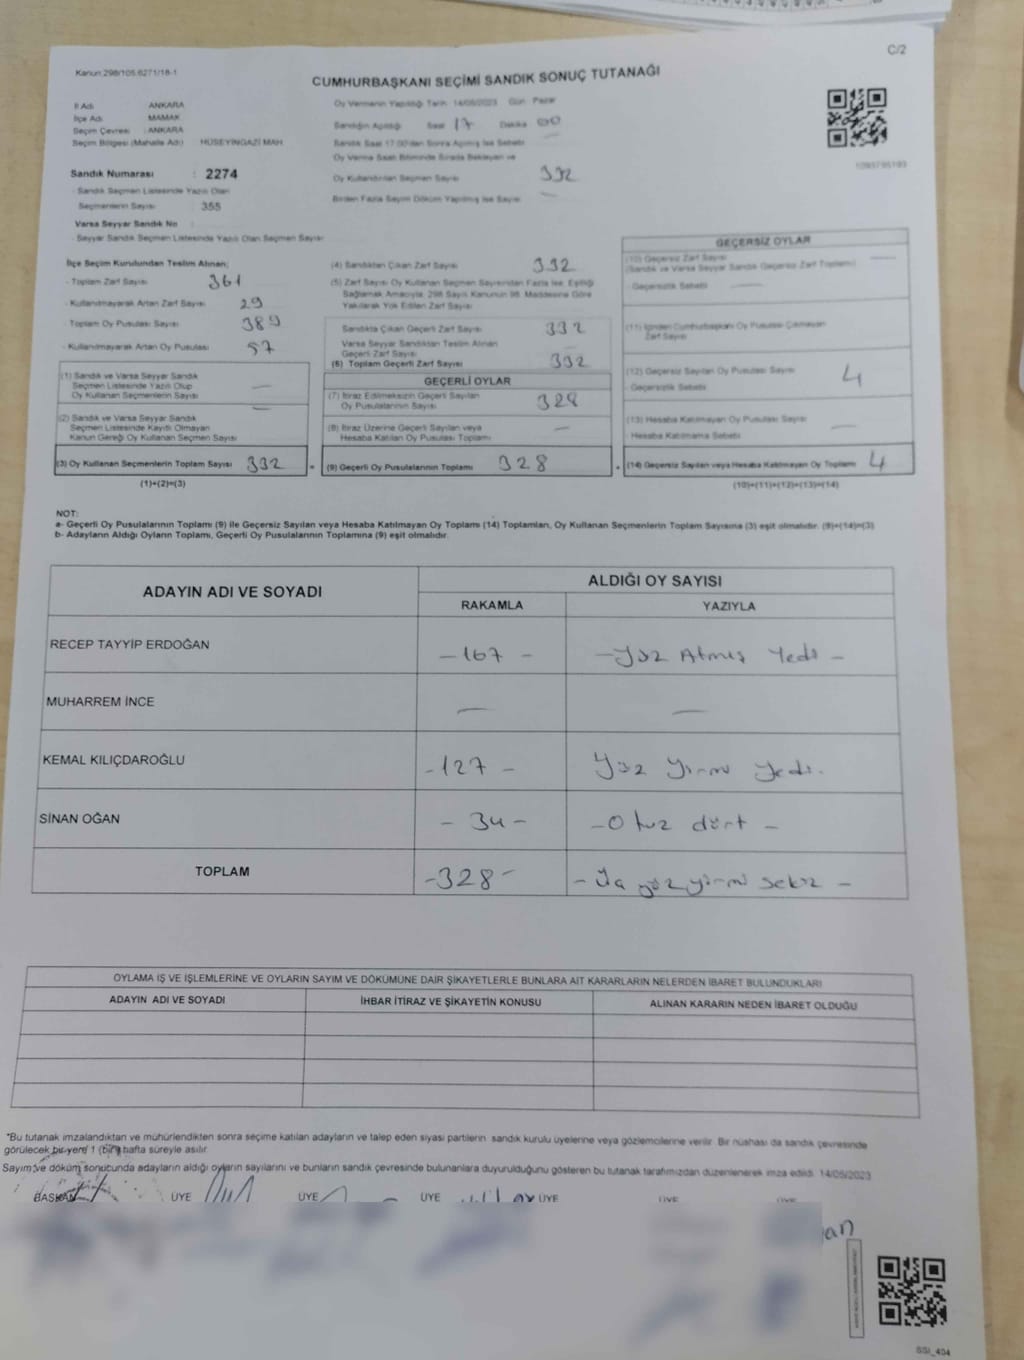 C/2
Kanun:298/105,6271/18-1
CUMHURBAŞKANI SEÇİMİ SANDIK SONUÇ TUTANAĞI
İl Adı ANKARA
İlçe Adı MAMAK
Seçim Çevresi : ANKARA
Seçim Bölgesi (Mahalle Adı) HÜSEYİNGAZİ MAH.
Sandık Numarası : 2274
- Sandık Seçmen Listesinde Yazılı Olan
Seçmenlerin Sayısı 355
Varsa Seyyar Sandık No
- Seyyar Sandık Seçmen Listesinde Yazılı Olan Seçmen Sayısı
Oy Vermenin Yapıldığı Tarih 14/05/2023 Gün Pazar
Sandığın Açıldığı Saat 17 Dakika 00
Sandık Saat 17.00'dan Sonra Açılmış İse Sebebi
Oy Verme Saati Bitiminde Sırada Bekleyen ve
Oy Kullandırılan Seçmen Sayısı 332
Birden Fazla Sayım Döküm Yapılmış İse Sayısı —
İlçe Seçim Kurulundan Teslim Alınan;
- Toplam Zarf Sayısı 361
- Kullanılmayarak Artan Zarf Sayısı 29
- Toplam Oy Pusulası Sayısı 389
- Kullanılmayarak Artan Oy Pusulası 57
(1) Sandık ve Varsa Seyyar Sandık
Seçmen Listesinde Yazılı Olup
Oy Kullanan Seçmenlerin Sayısı —
(2) Sandık ve Varsa Seyyar Sandık
Seçmen Listesinde Kayıtlı Olmayan
Kanun Gereği Oy Kullanan Seçmen Sayısı —
(3) Oy Kullanan Seçmenlerin Toplam Sayısı 332
(1)+(2)=(3)
(4) Sandıktan Çıkan Zarf Sayısı 332
(5) Zarf Sayısı Oy Kullanan Seçmen Sayısından Fazla İse, Eşitliği
Sağlamak Amacıyla, 298 Sayılı Kanunun 98. Maddesine Göre
Yakılarak Yok Edilen Zarf Sayısı
Sandıkta Çıkan Geçerli Zarf Sayısı 332
Varsa Seyyar Sandıktan Teslim Alınan
Geçerli Zarf Sayısı —
(6) Toplam Geçerli Zarf Sayısı 332
GEÇERLİ OYLAR
(7) İtiraz Edilmeksizin Geçerli Sayılan
Oy Pusulalarının Sayısı 328
(8) İtiraz Üzerine Geçerli Sayılan veya
Hesaba Katılan Oy Pusulası Toplamı —
(9) Geçerli Oy Pusulalarının Toplamı 328
GEÇERSİZ OYLAR
(10) Geçersiz Zarf Sayısı
(Sandık ve Varsa Seyyar Sandık Geçersiz Zarf Toplamı) —
- Geçersizlik Sebebi —
(11) İçinden Cumhurbaşkanı Oy Pusulası Çıkmayan
Zarf Sayısı
(12) Geçersiz Sayılan Oy Pusulası Sayısı 4
- Geçersizlik Sebebi
(13) Hesaba Katılmayan Oy Pusulası Sayısı —
- Hesaba Katılmama Sebebi
(14) Geçersiz Sayılan veya Hesaba Katılmayan Oy Toplamı 4
(10)+(11)+(12)+(13)=(14)
NOT:
a- Geçerli Oy Pusulalarının Toplamı (9) ile Geçersiz Sayılan veya Hesaba Katılmayan Oy Toplamı (14) Toplamları, Oy Kullanan Seçmenlerin Toplam Sayısına (3) eşit olmalıdır. (9)+(14)=(3)
b- Adayların Aldığı Oyların Toplamı, Geçerli Oy Pusulalarının Toplamına (9) eşit olmalıdır.
ADAYIN ADI VE SOYADI ALDIĞI OY SAYISI
RAKAMLA YAZIYLA
RECEP TAYYİP ERDOĞAN - 167 - - Yüz Atmış Yedi -
MUHARREM İNCE — —
KEMAL KILIÇDAROĞLU - 127 - Yüz Yirmi Yedi.
SİNAN OĞAN - 34 - - Otuz dört -
TOPLAM - 328 - - Üç yüz yirmi sekiz -
OYLAMA İŞ VE İŞLEMLERİNE VE OYLARIN SAYIM VE DÖKÜMÜNE DAİR ŞİKAYETLERLE BUNLARA AİT KARARLARIN NELERDEN İBARET BULUNDUKLARI
ADAYIN ADI VE SOYADI İHBAR İTİRAZ VE ŞİKAYETİN KONUSU ALINAN KARARIN NEDEN İBARET OLDUĞU
*Bu tutanak imzalandıktan ve mühürlendikten sonra seçime katılan adayların ve talep eden siyasi partilerin sandık kurulu üyelerine veya gözlemcilerine verilir. Bir nüshası da sandık çevresinde
görülecek bir yere 1 (bir) hafta süreyle asılır.
Sayım ve döküm sonucunda adayların aldığı oyların sayılarını ve bunların sandık çevresinde bulunanlara duyurulduğunu gösteren bu tutanak tarafımızdan düzenlenerek imza edildi. 14/05/2023
BAŞKAN ÜYE ÜYE ÜYE ÜYE ÜYE ÜYE
SSI_404